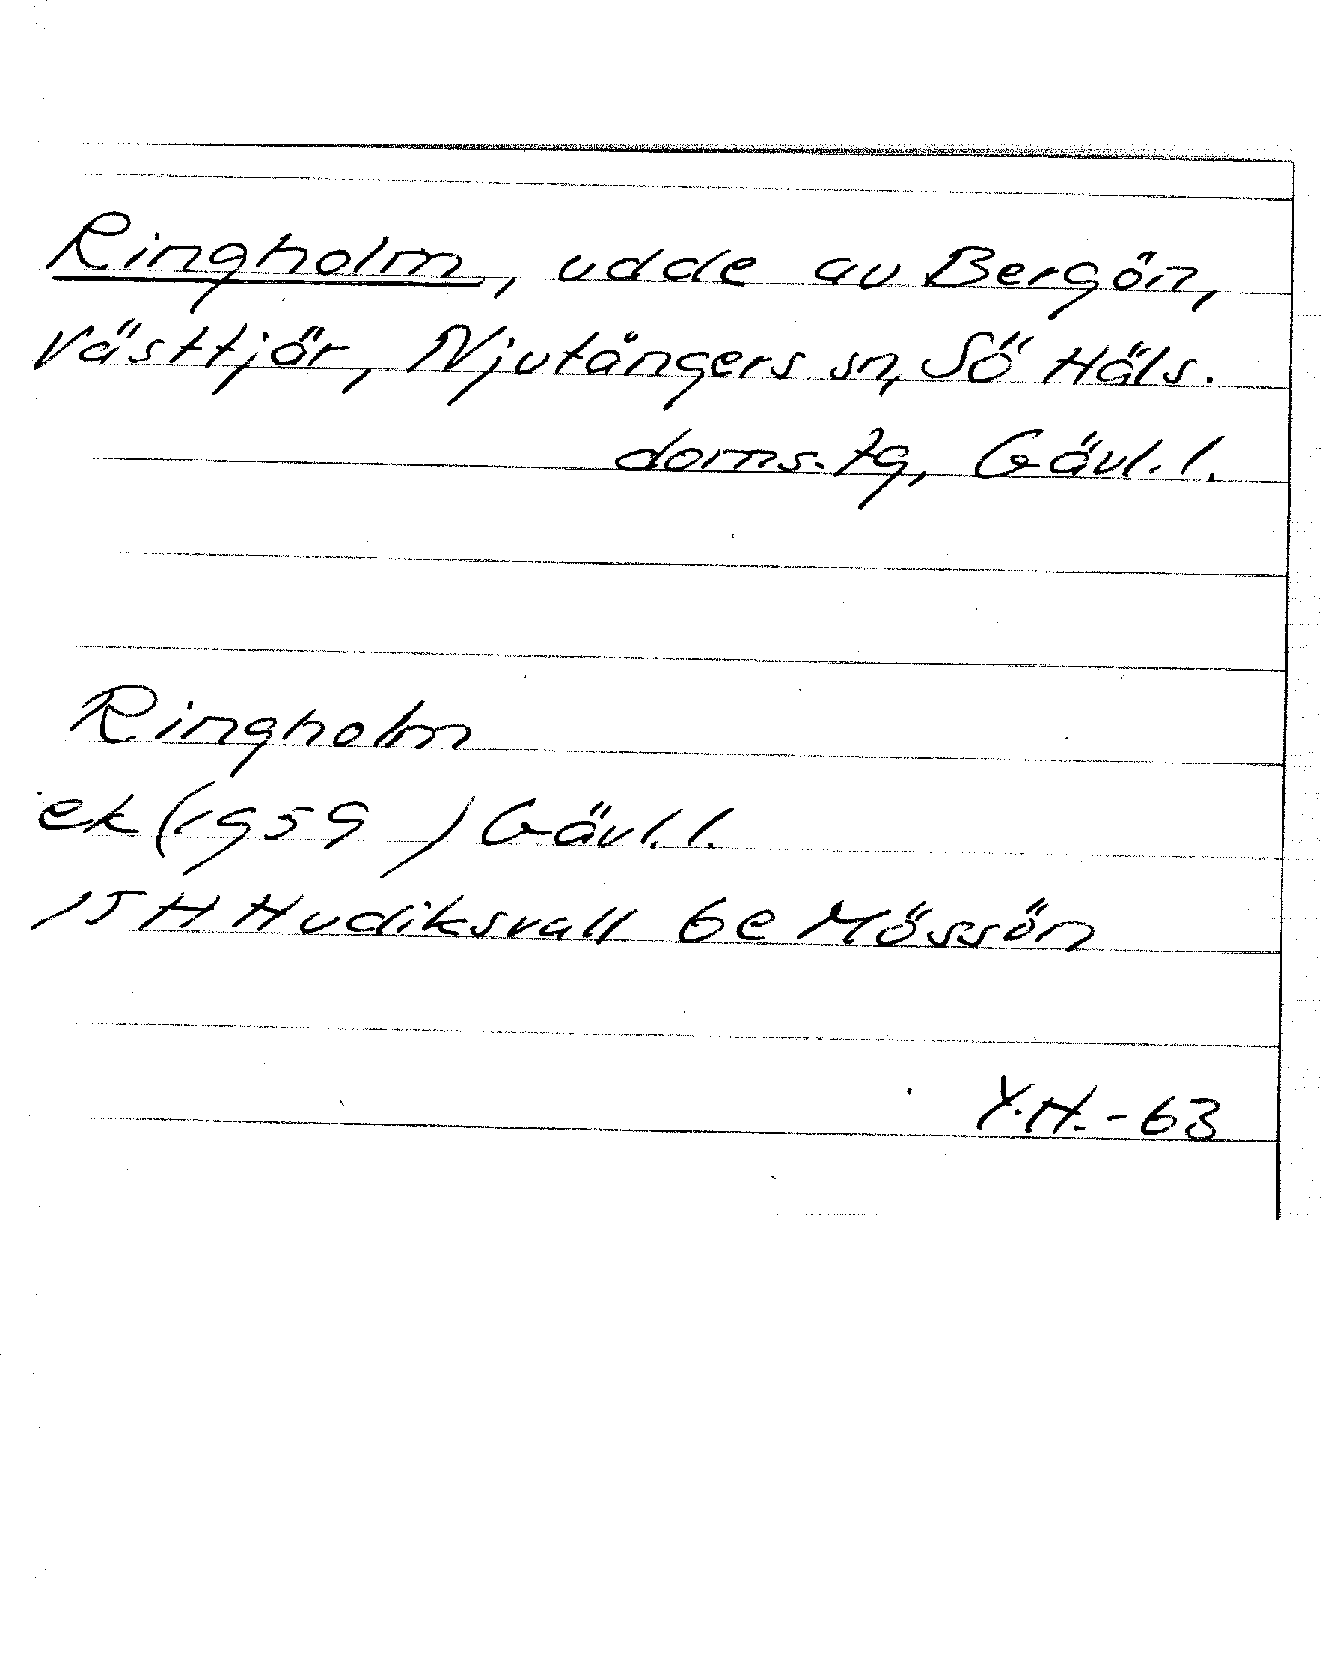 Ringholm, udde av Bergön,
Västtjär, Njutångers sn, Sö Häls.
doms.tg, Gävl.l.
Ringholm
ek (1959 ) Gävl.l.
15 H Hudiksvall 6e Mössön
Y.H.-63